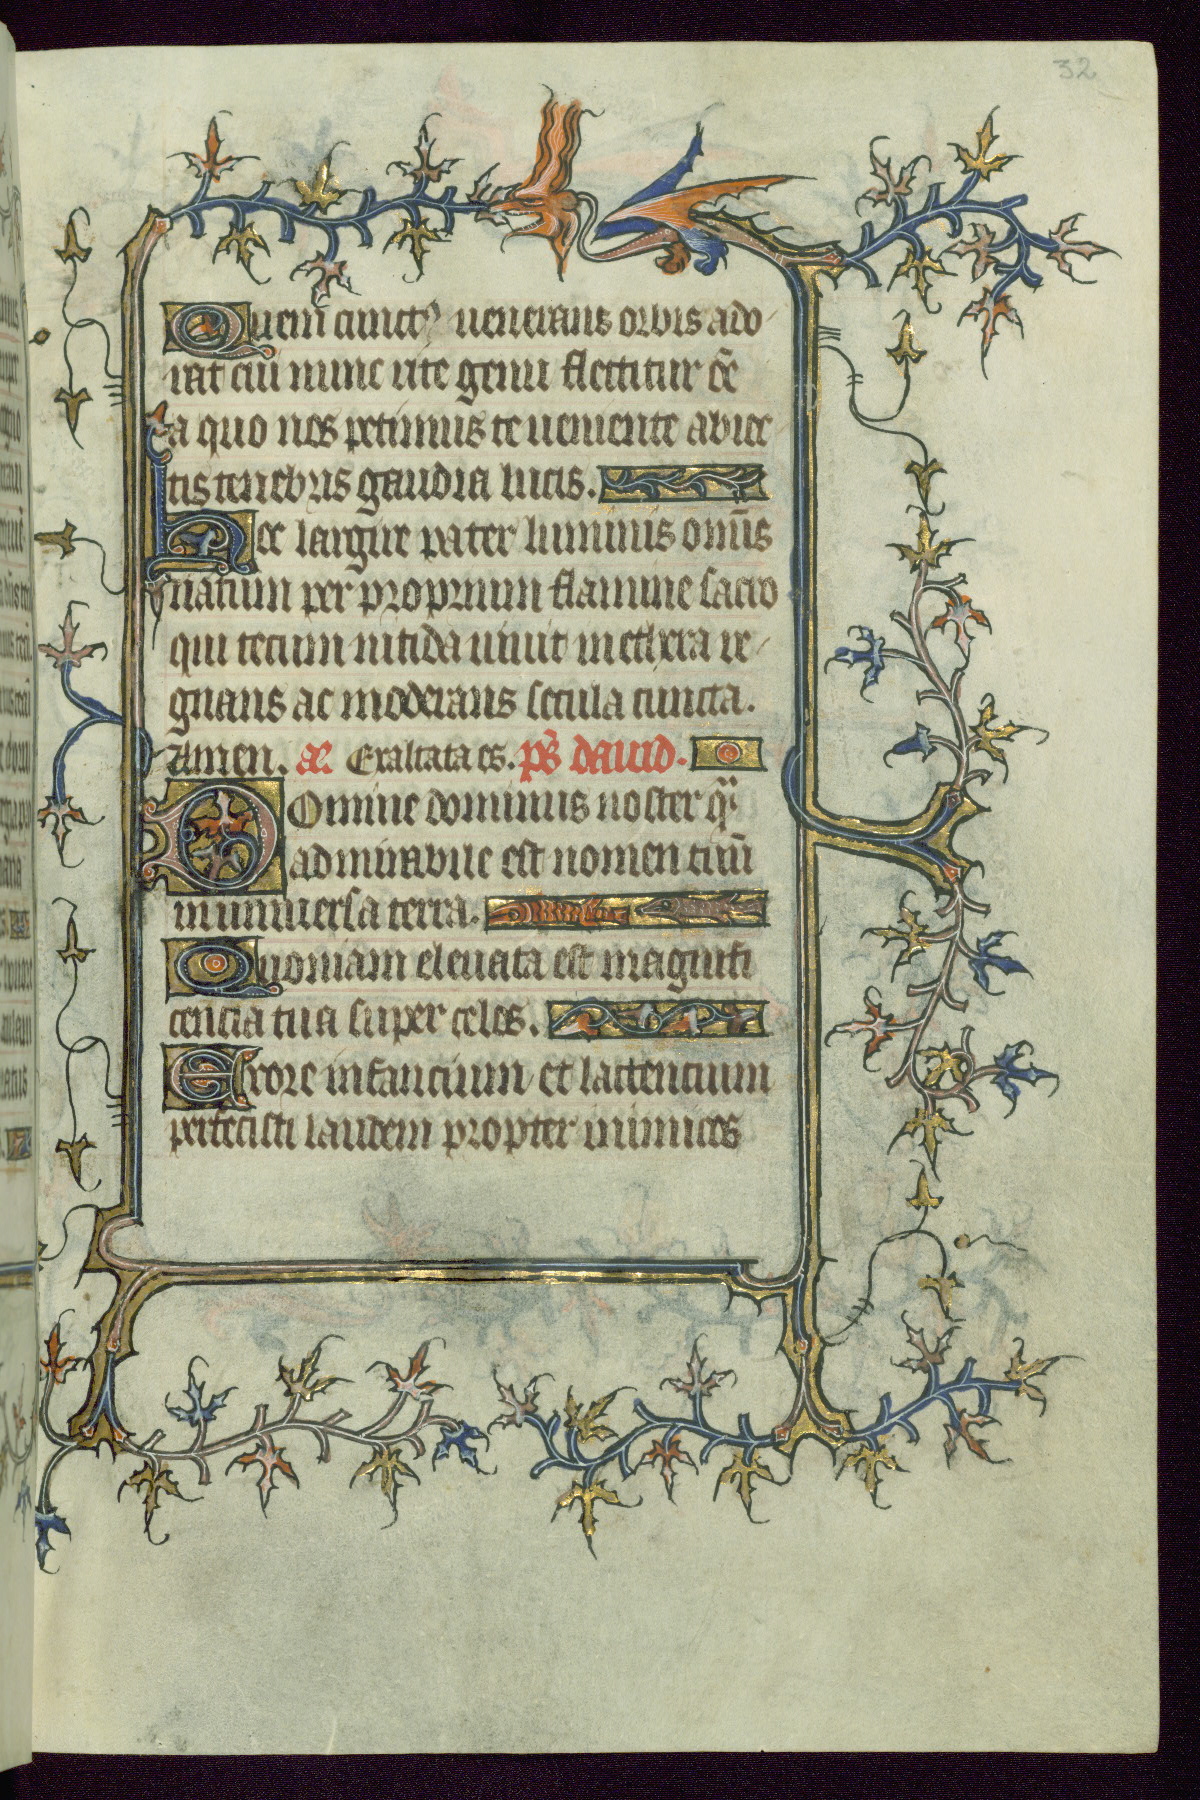 32
Quem cunctꝰ uenerans orbis ado
rat cui nunc rite genu flectitur oē
a quo nos petimus te ueniente abiec
tis tenebris gaudia lucis.
Hec largire pater luminis omīs
natum per proprium flamine sacro
qui tecum nitida uiuit in ethera re
gnans ac moderans secula cuncta.
Amen. aͤ. Exaltata es. ps̄ dauid.
Domine dominus noster qͣ
admirabile est nomen tuū
in uniuersa terra.
Quoniam eleuata est magnifi
cencia tua super celos.
Ex ore infancium et lactencium
perfecisti laudem propter inimicos